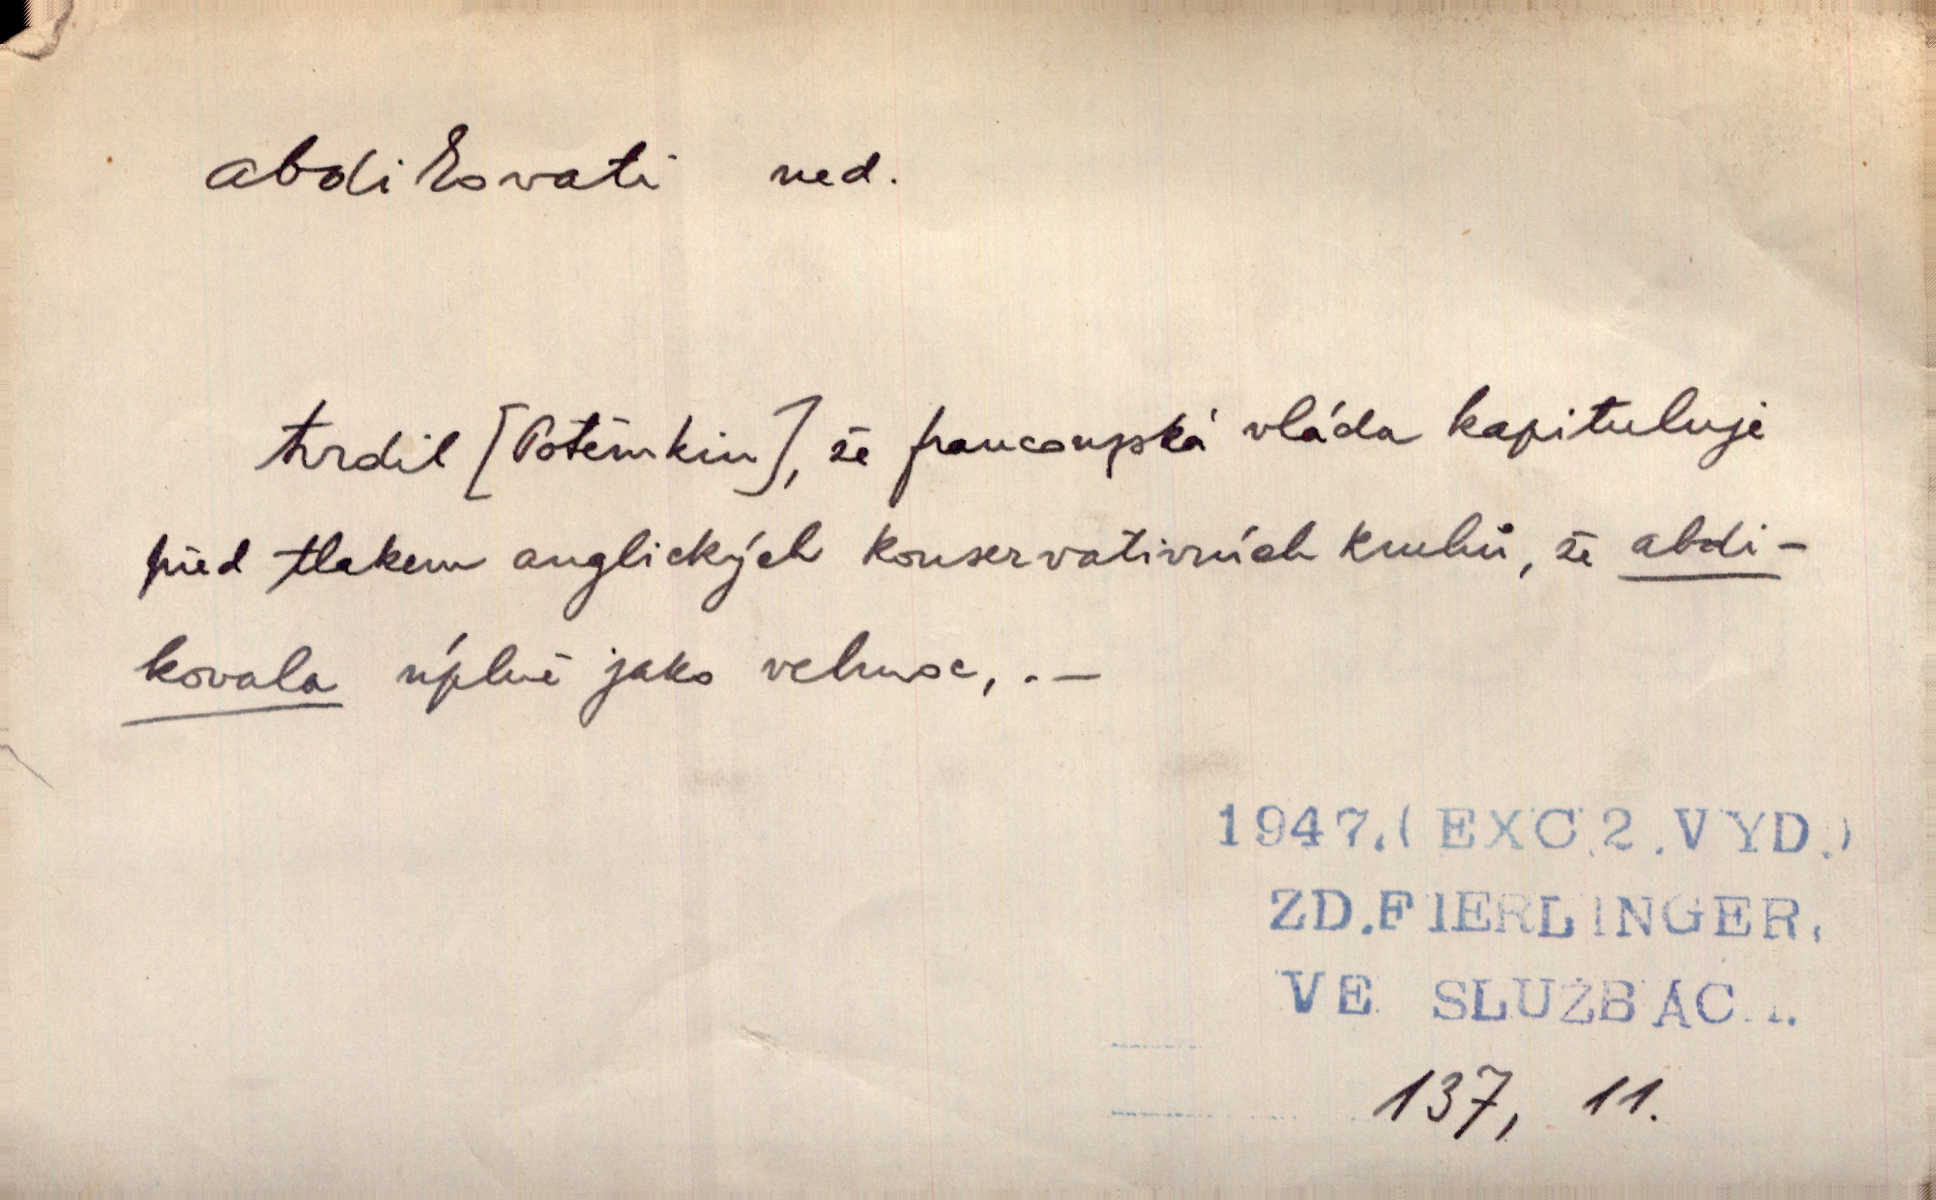 abdikovati ned.
tvrdil [Potěmkin], že francouzská vláda kapituluje
před tlakem anglických konservativních kruhů, že abdi-
kovala úplně jako velmoc, . —
1947.(EXC.2.VYD.)
ZD.FIERLINGER,
VE SLUŽBÁC..
137, 11.